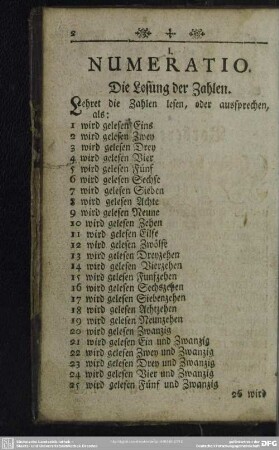 2
I.
NUMERATIO.
Die Losung der Zahlen.
Lehret die Zahlen lesen, oder aussprechen,
als:
1 wird gelesen Eins
2 wird gelesen Zwey
3 wird gelesen Drey
4 wird gelesen Vier
5 wird gelesen Fünf
6 wird gelesen Sechse
7 wird gelesen Sieben
8 wird gelesen Achte
9 wird gelesen Neune
10 wird gelesen Zehen
11 wird gelesen Eilfe
12 wird gelesen Zwölfe
13 wird gelesen Dreyzehen
14 wird gelesen Vierzehen
15 wird gelesen Funfzehen
16 wird gelesen Sechszehen
17 wird gelesen Siebenzehen
18 wird gelesen Achtzehen
19 wird gelesen Neunzehen
20 wird gelesen Zwanzig
21 wird gelesen Ein und Zwanzig
22 wird gelesen Zwey und Zwanzig
23 wird gelesen Drey und Zwanzig
24 wird gelesen Vier und Zwanzig
25 wird gelesen Fünf und Zwanzig
26 wird